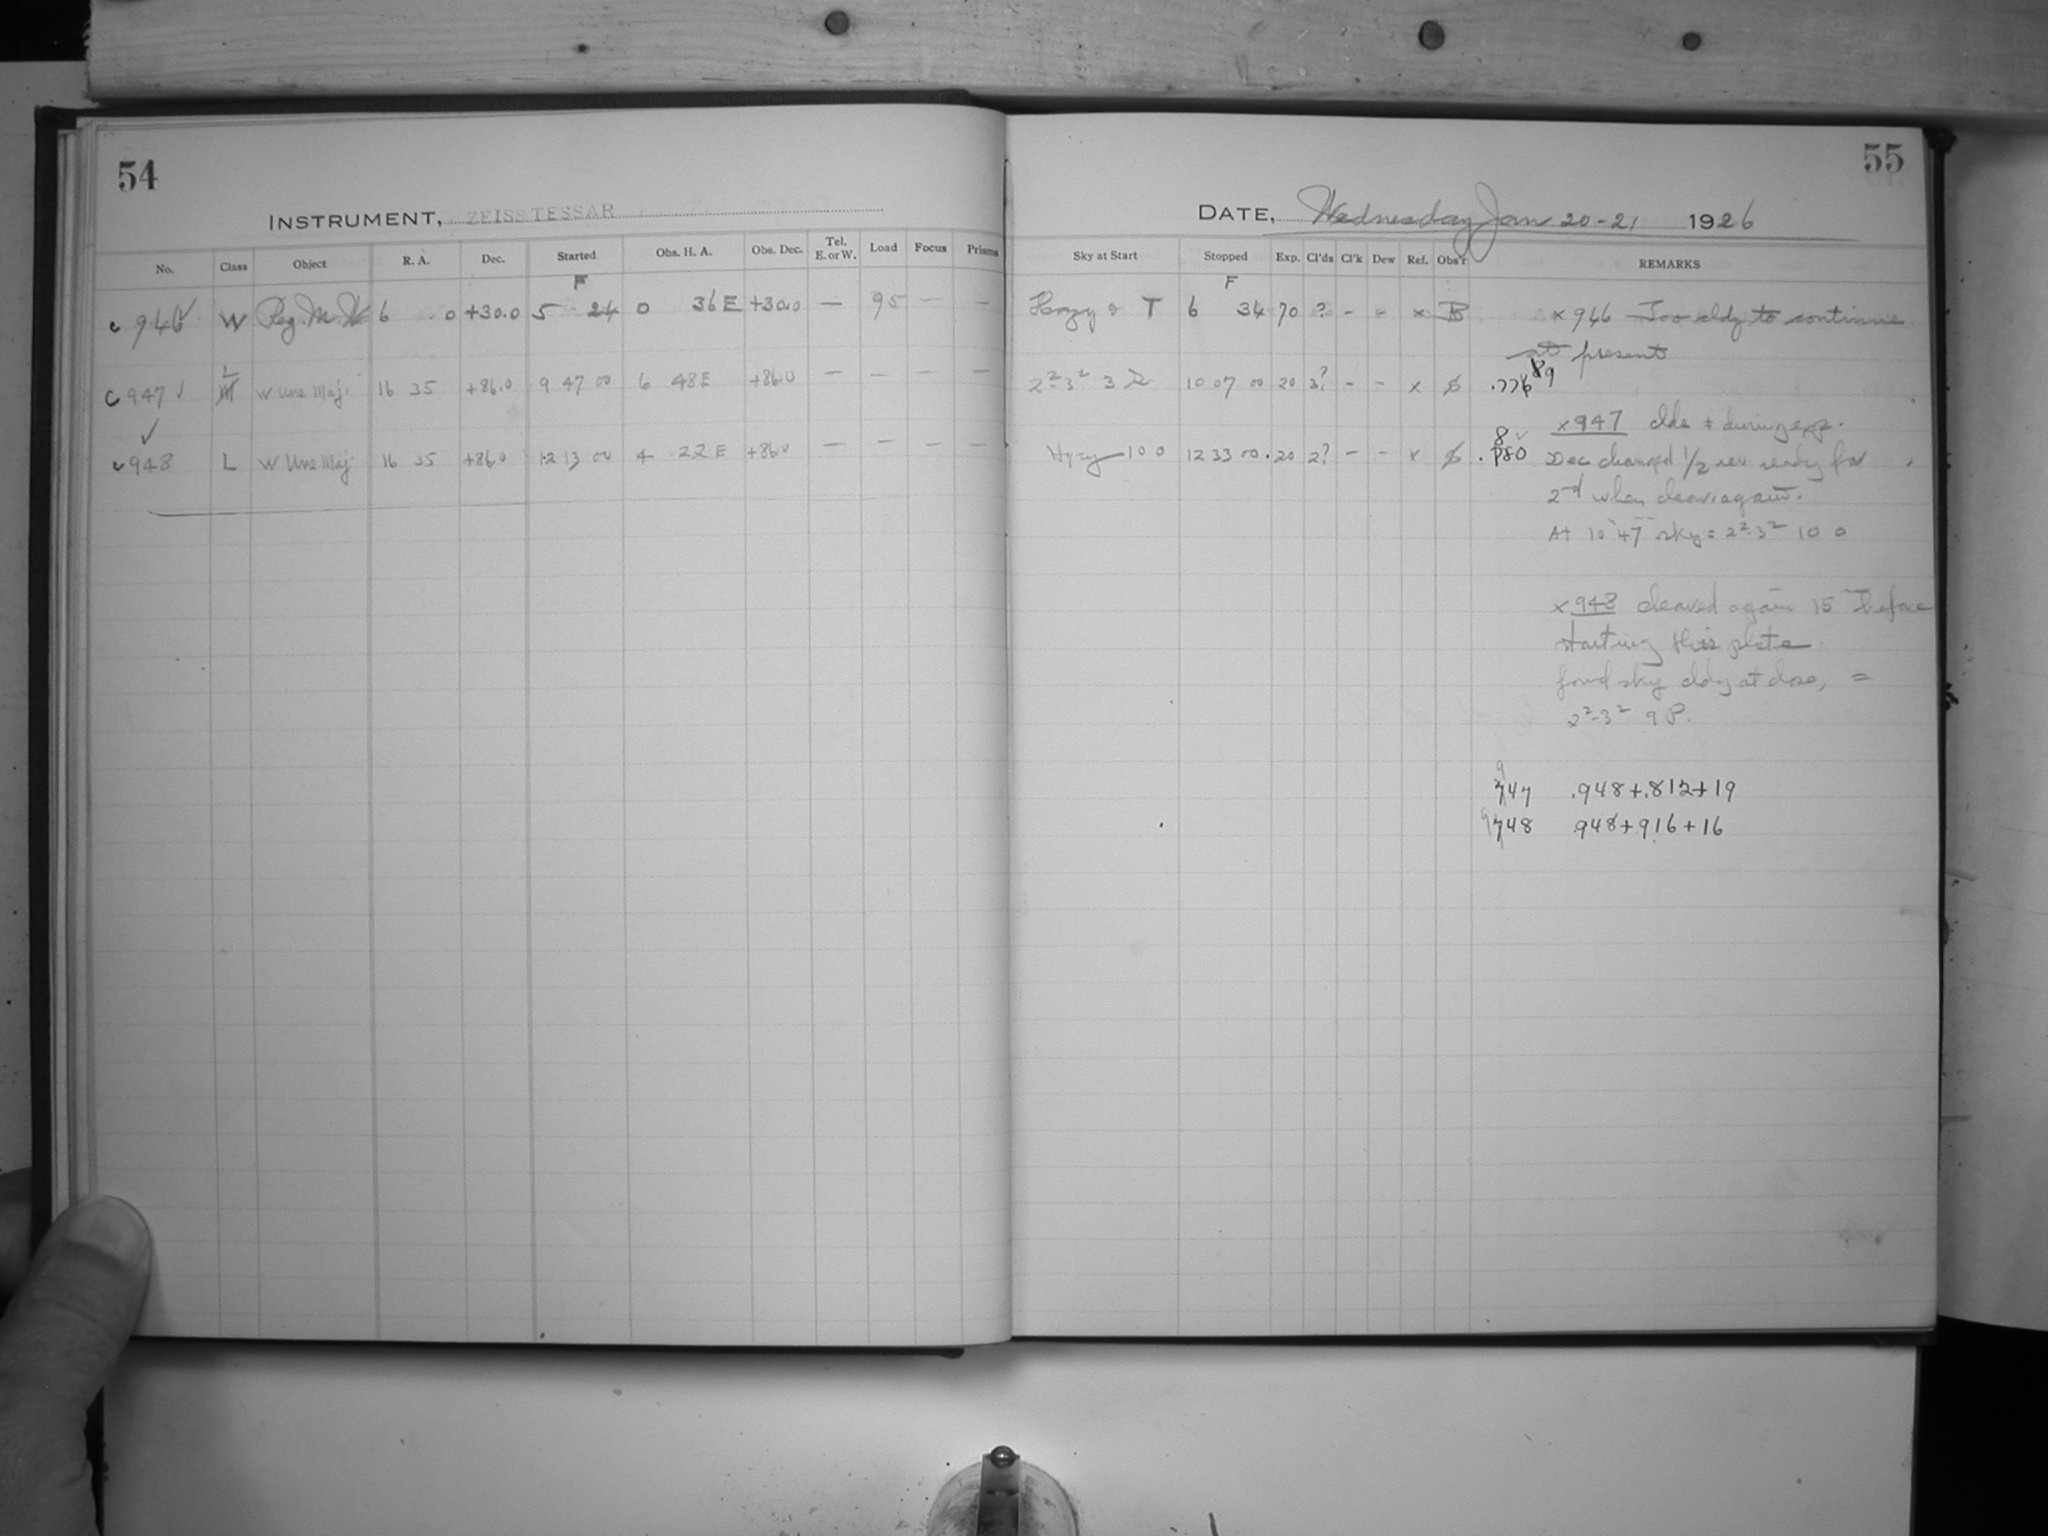 54
INSTRUMENT, ZEISS TESSAR
No. Class Object R. A. Dec. Started Obs. H. A. Obs. Dec. Tel. E. or W. Load Focus Prisms
F
c 946 ✓ W Reg. M. W 6 0 +30.0 5 24 0 36 E +30.0 — 95 — —
L
C 947 ✓ W Urs Maj. 16 35 +86.0 9 47 00 6 48 E +86.0 — — — —
✓
c 948 L W Urs Maj 16 35 +86.0 12 13 00 4 22 E +86.0 — — — —
55
DATE, Wednesday Jan 20-21 1926
Sky at Start Stopped Exp. Cl'ds Cl'k Dew Ref. Obs'r REMARKS
F
Hazy 0 T 6 34 70 ? - - x B x 946 Too cldy to continue
at present
2²-3² 3 2 10 07 00 20 3? - - x .776 89
x 947 clds + during exp.
Hazy 10 0 12 33 00 20 2? - - x .980 8 ✓
Dec changed 1/2 rev ready for
2nd when clear again.
At 10 47 sky = 2²-3² 10 0
x 948 cleared again 15 m before
starting this plate
found sky cldy at close, =
2²-3² 9 P.
9
747 .948+.812+19
9748 .948+916+16